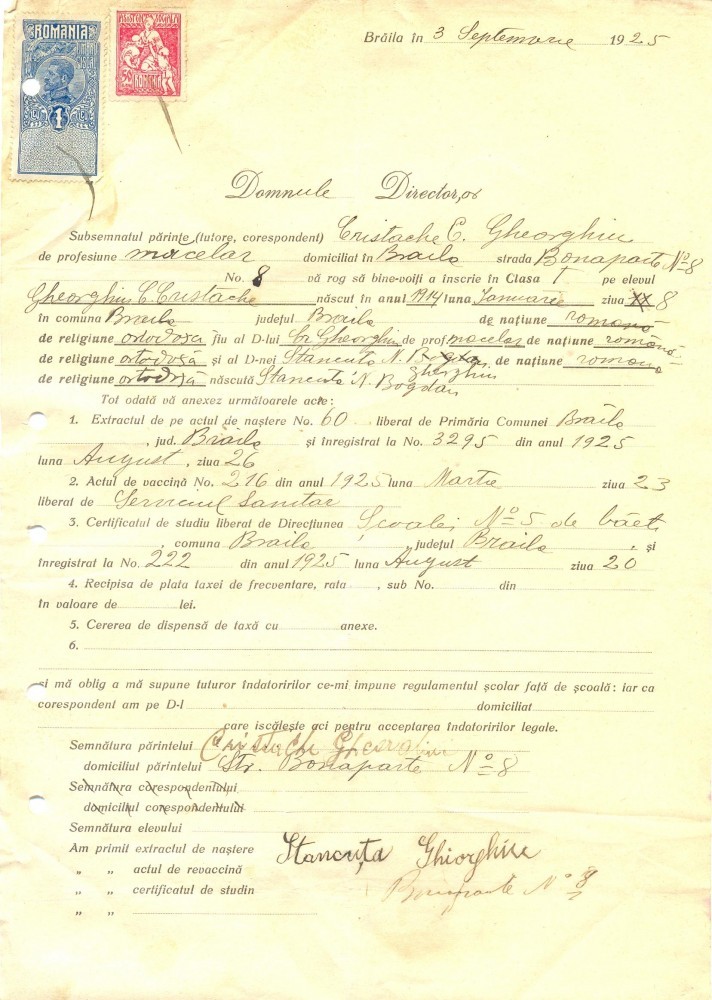 ROMANIA
1
50
Brăila în 3 Septemvrie 1925
Domnule Director,
Subsemnatul părinte (tutore, corespondent) Cristache C. Gheorghiu
de profesiune măcelar domiciliat în Braila strada Bonaparte No 8
No. 8 vă rog să bine-voiți a înscrie în Clasa I pe elevul
Gheorghiu C. Cristache născut în anul 1914 luna Januarie ziua 8
în comuna Braila județul Braila de națiune romană
de religiune ortodoxă fiu al D-lui Cr. Gheorghiu de prof. macelar de națiune română
de religiune ortodoxă și al D-nei Stancuta N. Gheorghiu de națiune romana
de religiune ortodoxă născută Stancuta N. Bogdan
Tot odată vă anexez următoarele acte:
1. Extractul de pe actul de naștere No. 60 liberat de Primăria Comunei Brăila
, jud. Brăila și înregistrat la No. 3295 din anul 1925
luna August, ziua 26
2. Actul de vaccină No. 216 din anul 1925 luna Martie ziua 23
liberat de Serviciul Sanitar
3. Certificatul de studiu liberat de Direcțiunea Școalei No 5 de băeți
, comuna Braila, județul Brăila, și
înregistrat la No. 222 din anul 1925 luna August ziua 20
4. Recipisa de plata taxei de frecventare, rata , sub No. din
în valoare de lei.
5. Cererea de dispensă de taxă cu anexe.
6.
și mă oblig a mă supune tuturor îndatoririlor ce-mi impune regulamentul școlar față de școală: iar ca
corespondent am pe D-l domiciliat
care iscălește aci pentru acceptarea îndatoririlor legale.
Semnătura părintelui Cristache Gheorghiu
domiciliul părintelui Str. Bonaparte No 8
Semnătura corespondentului
domiciliul corespondentului
Semnătura elevului
Am primit extractul de naștere Stancuța Ghiorghiu
„ „ actul de revaccină
„ „ certificatul de studin Bonaparte No 8
„ „